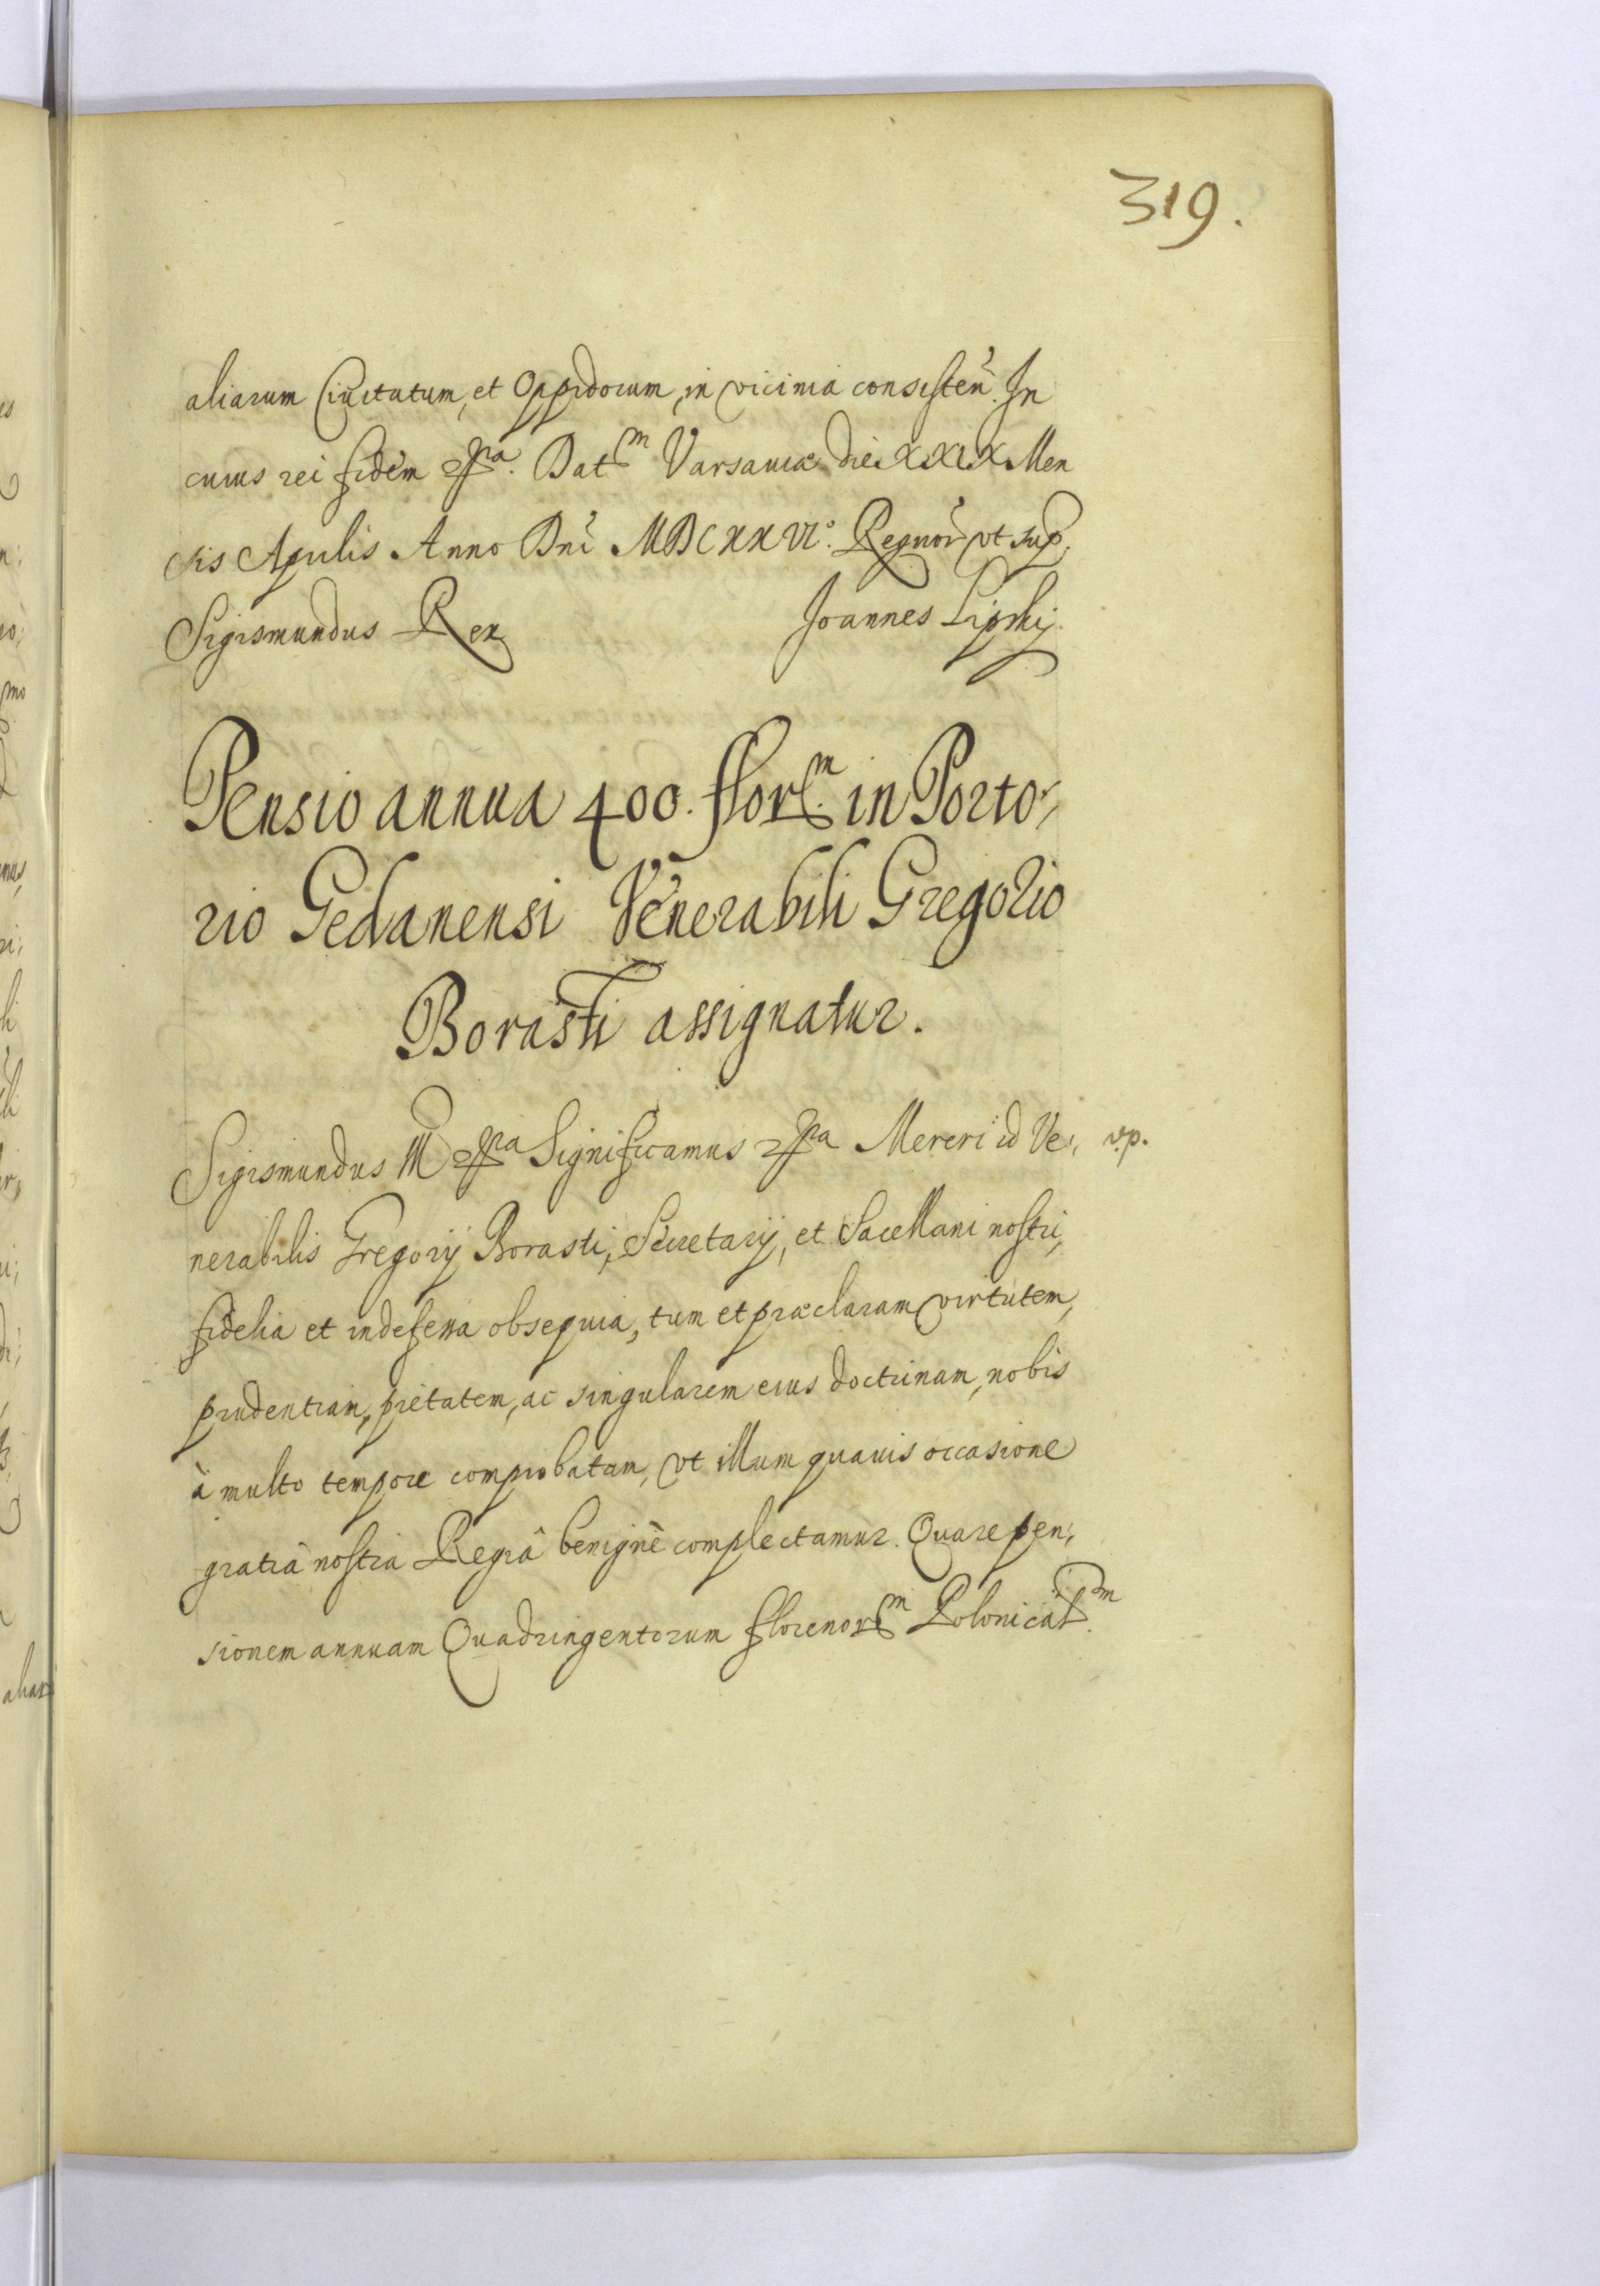 319.
aliarum Ciuitatum, et Oppidorum, in vicinia consisten. In
cuius rei fidem etc. Datm Varsauiæ die XXIX Men
sis Aprilis Anno Dni MDCXXVIo. Regnor vt sup,
Sigismundus Rex Joannes Lipskj
Pensio annua 400. florm. in Porto-
rio Gedanensi Venerabili Gregorio
Borasti assignatur.
Sigismundus III etc Significamus etc Mereri id Ve, vp.
nerabilis Gregorij Borasti, Secretarij, et Sacellani nostri,
fidelia et indefessa obsequia, tum et præclaram virtutem,
prudentiam, pietatem, ac singularem eius doctrinam, nobis
à multo tempore comprobatam, vt illum quauis occasione
gratiâ nostra Regiâ benignè complectamur. Quare pen,
sionem annuam Quadringentorum florenorm Polonicalm.